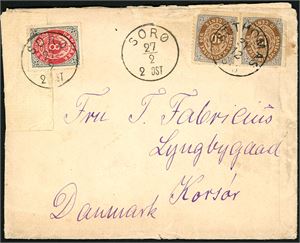 SORØ
27
2
2 OST
Fru T. Fabricius
Lyngbygaad
Korsør
Danmark